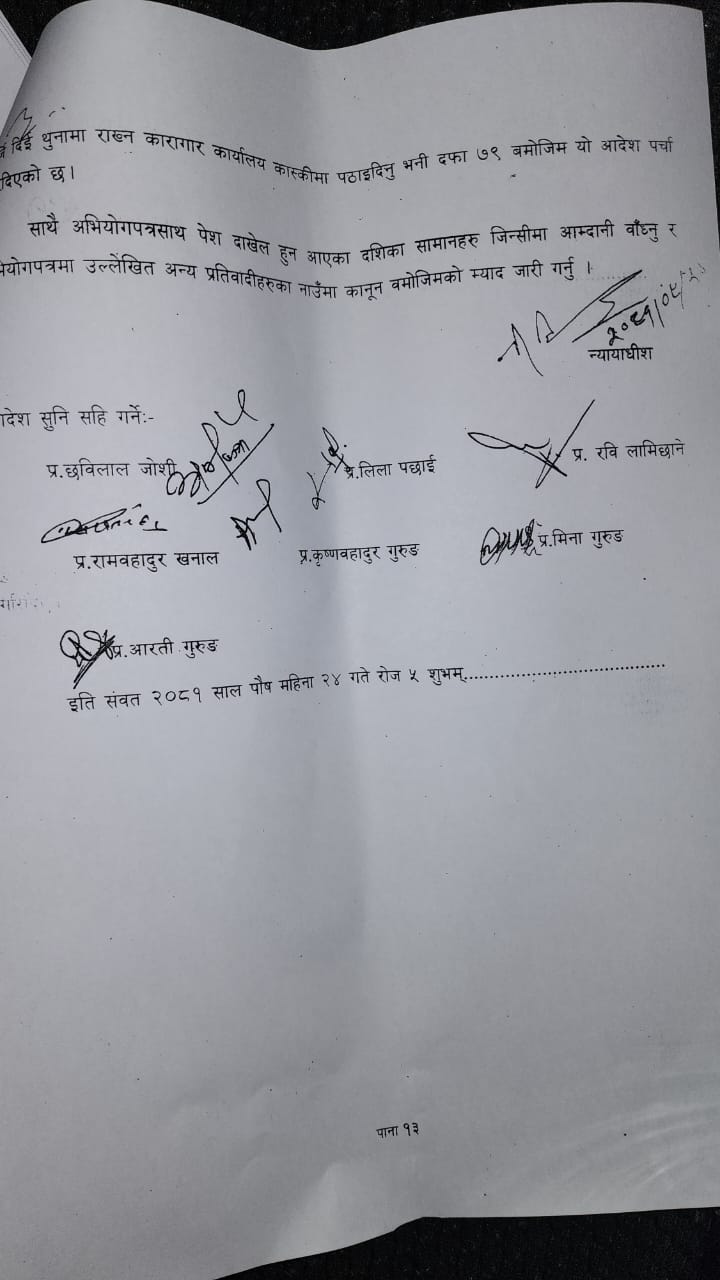 दिई थुनामा राख्न कारागार कार्यालय कास्कीमा पठाइदिनु भनी दफा ७९ बमोजिम यो आदेश पर्चा
दिएको छ।
साथै अभियोगपत्रसाथ पेश दाखेल हुन आएका दशिका सामानहरु जिन्सीमा आम्दानी वाँध्नु र
योगपत्रमा उल्लेखित अन्य प्रतिवादीहरुका नाउँमा कानून वमोजिमको म्याद जारी गर्नु ।
न्यायाधीश
देश सुनि सहि गर्नेः-
प्र.छविलाल जोशी प्र.लिला पछाई प्र. रवि लामिछाने
प्र.रामवहादुर खनाल प्र.कृष्णवहादुर गुरुङ प्र.मिना गुरुङ
प्र.आरती गुरुङ
इति संवत २०८१ साल पौष महिना २४ गते रोज ५ शुभम्..........................................
पाना १३